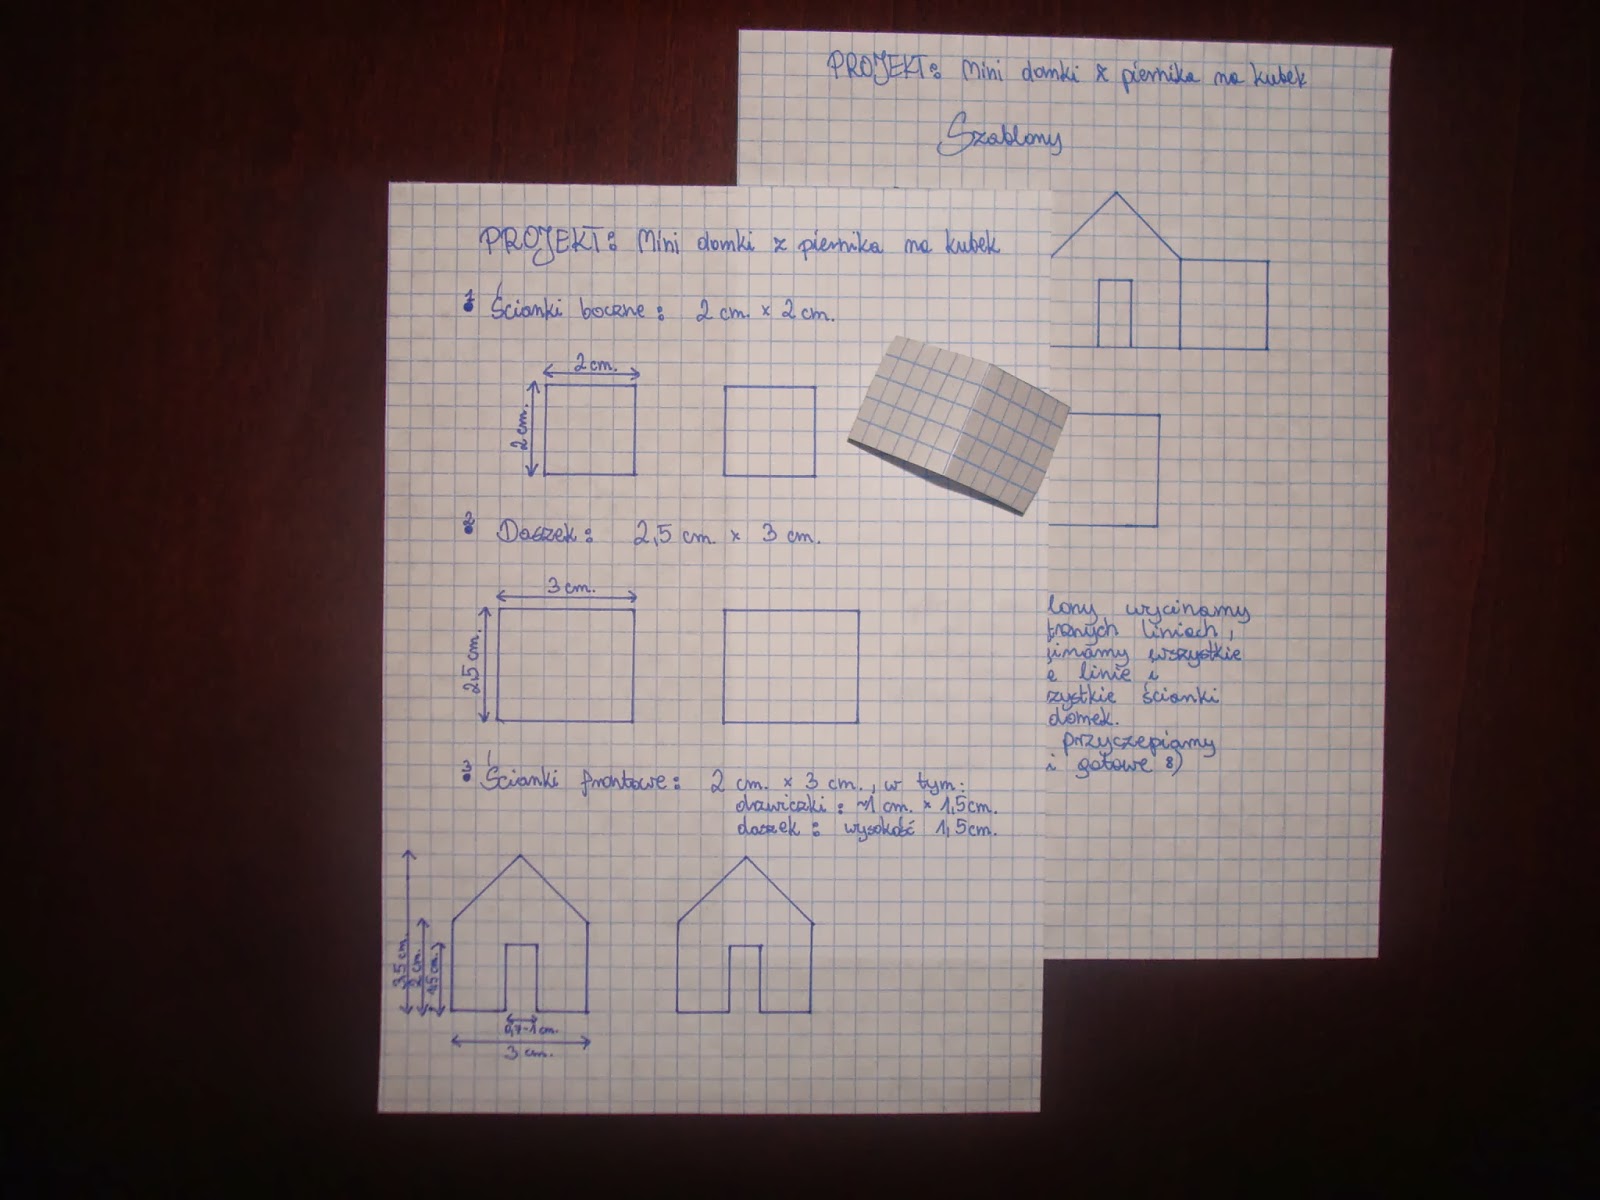 PROJEKT: Mini domki z piernika na kubek
Szablony
PROJEKT: Mini domki z piernika na kubek
1. Ścianki boczne: 2 cm. x 2 cm.
2 cm.
2 cm.
2. Daszek: 2,5 cm x 3 cm.
3 cm.
2,5 cm.
3. Ścianki frontowe: 2 cm. x 3 cm., w tym:
drzwiczki: ~1 cm. x 1,5cm.
daszek: wysokość 1,5cm.
3,5 cm.
2 cm.
1,5 cm.
0,7-1 cm.
3 cm.
lony wycinamy
liniach,
wszystkie
e linie i
zystkie ścianki
domek.
przyczepiamy
i gotowe 8)